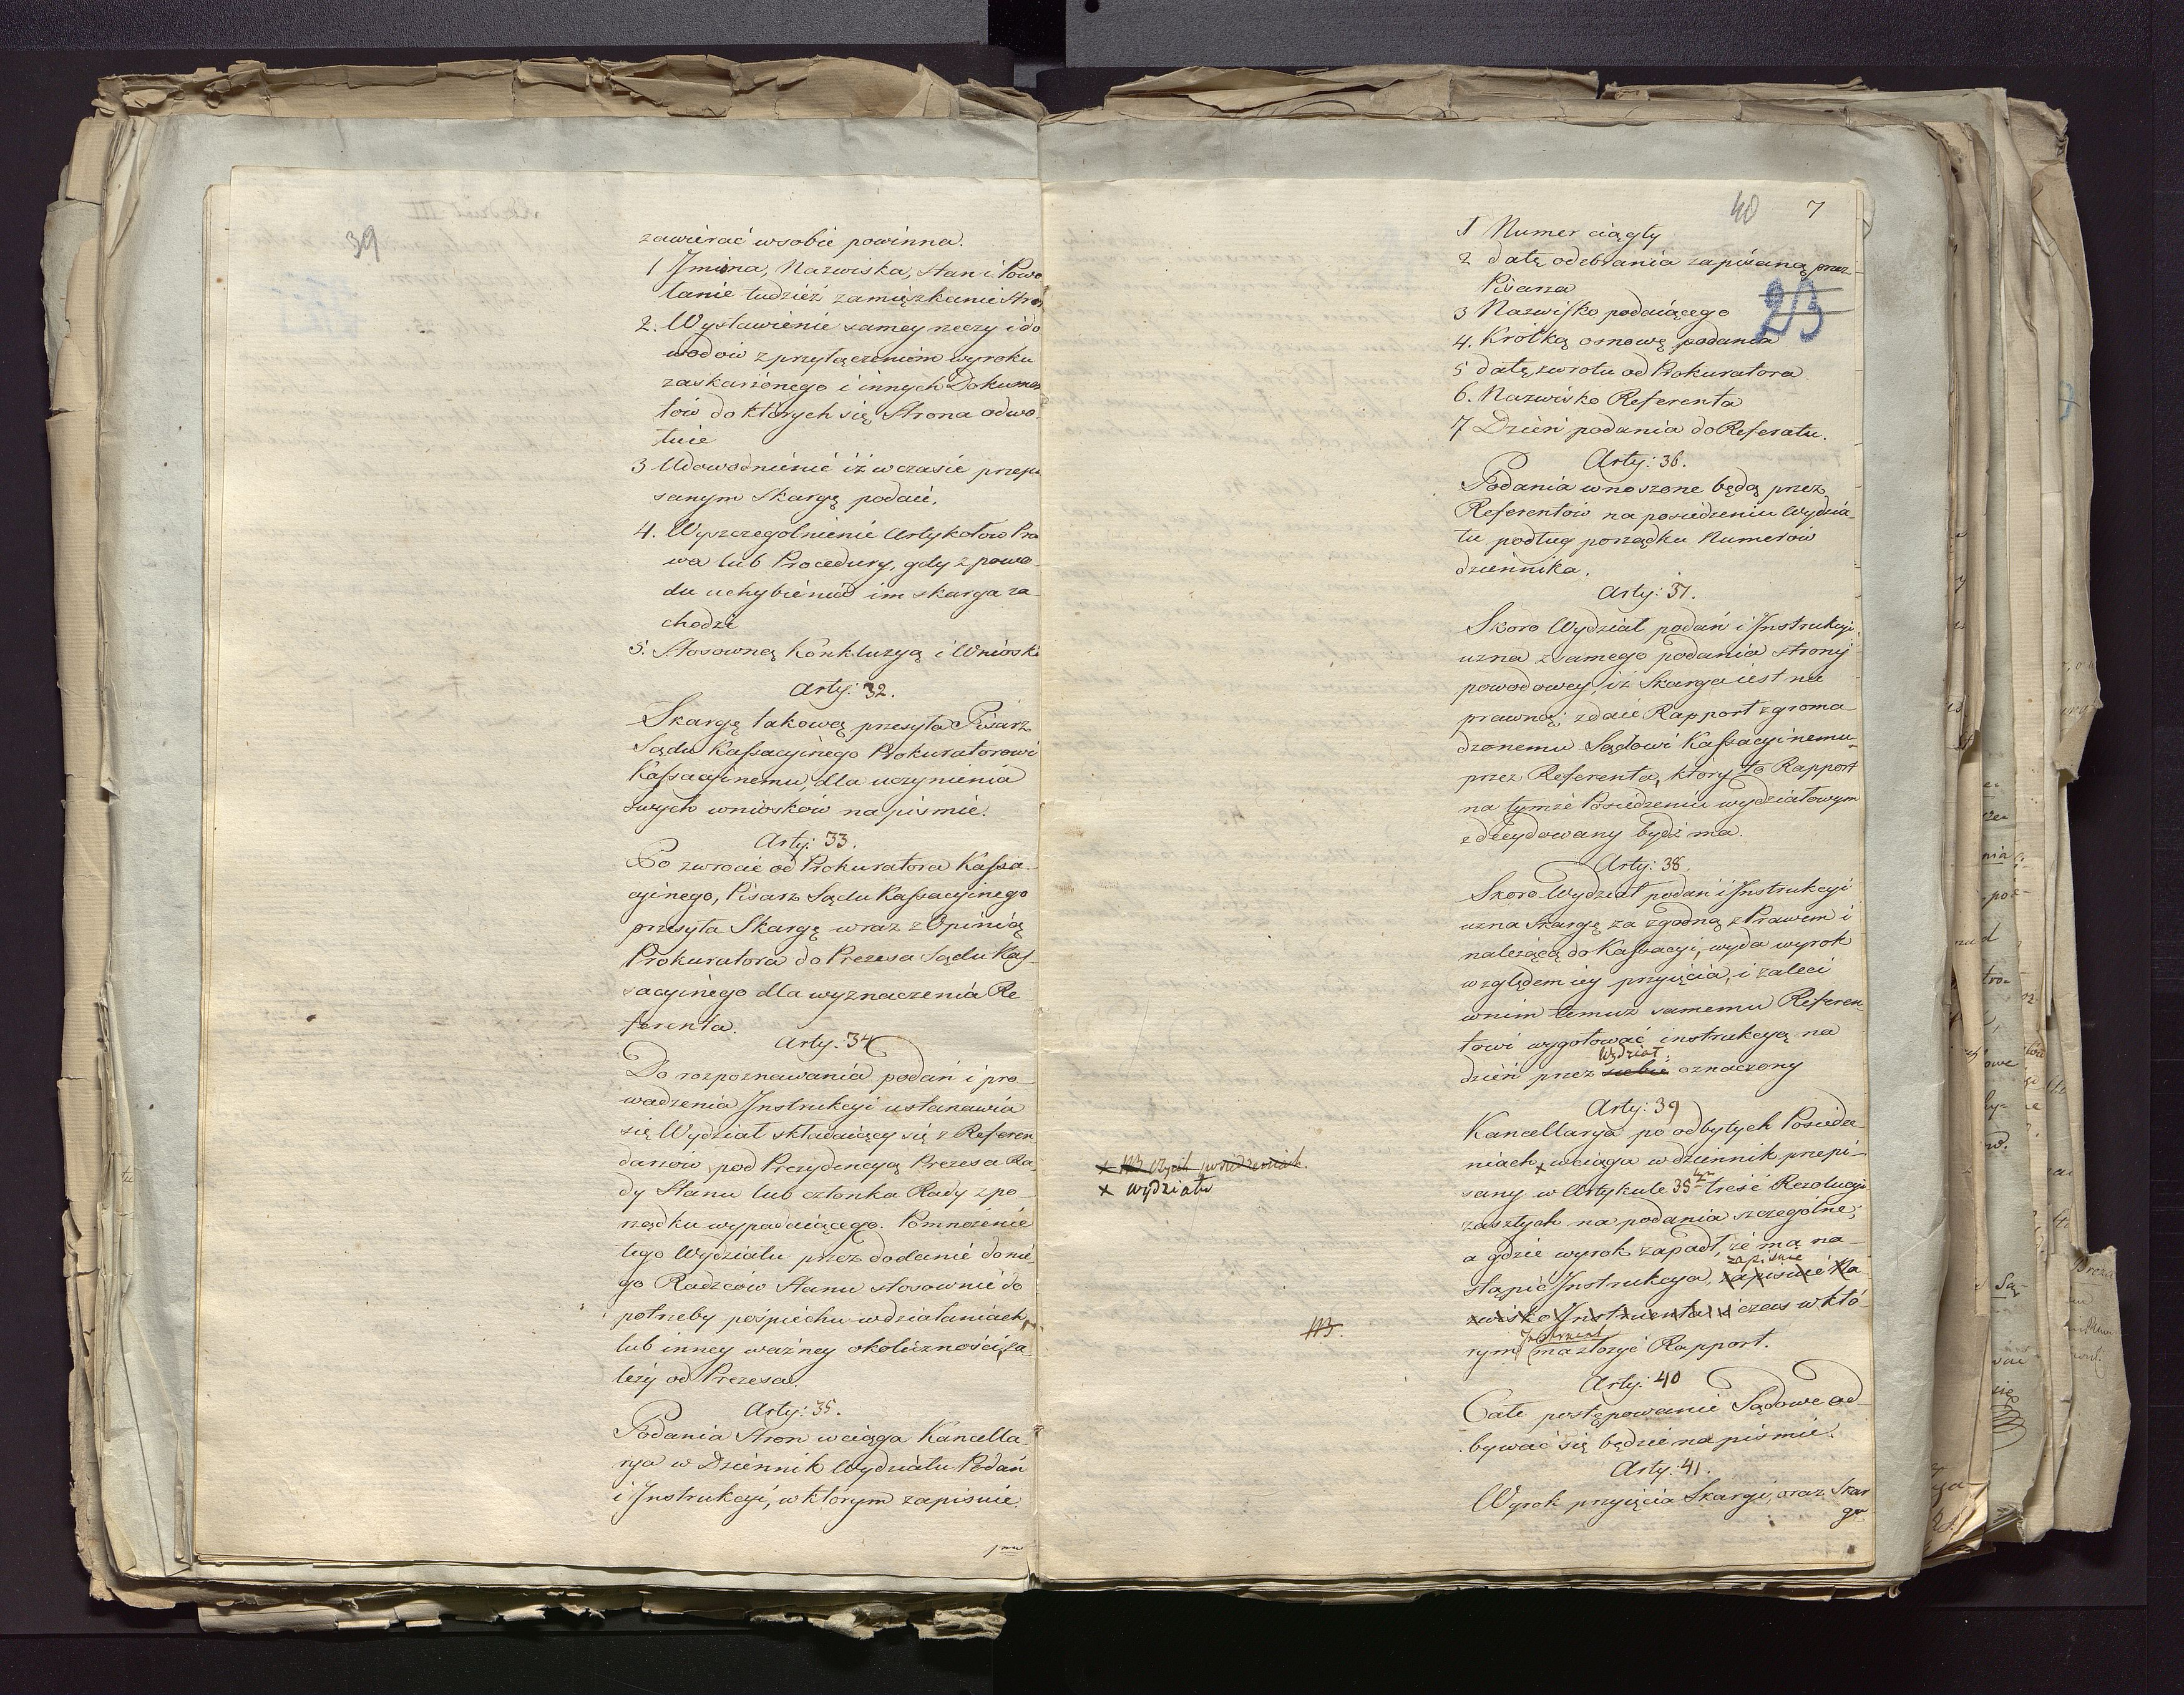 39
zawiérać w sobie powinna.
1 Jmiona, Nazwiska, Stan i Powo
łanie tudzież zamięszkanie Stron
2. Wystawiénie samey rzeczy i do
wodów z przyłączeniem wyroku
zaskarżonego i innych Dokumen
tów do których się Strona odwo-
łuie
3 Udowodniénié iż w czasie przepi
sanym Skargę podaié.
4. Wyszczegolniénié Artykołów Pra
wa lub Procedury, gdy z powo-
du uchybiéniá im skarga za-
chodzi
5. Stosowną Konkluzyą i Wnioski
Arty: 32.
Skargę takową przesyła Pisarz
Sądu Kassacyinego Prokuratorowi
Kassacyinemu, dla uczyniénia
swych wniosków na piśmie.
Arty: 33.
Po zwrocie od Prokuratora Kassa-
cyinego, Pisarz Sądu Kassacyinego
przesyła Skargę wraz z Opinią
Prokuratora do Prezesa Sądu Kas-
sacyinego dla wyznaczenia Re-
ferenta.
Arty: 34
Do rozpoznawania podań i pro-
wadzenia Jnstrukcyi ustanawia
się Wydział składaiący się z Referen
darzów pod Prezydencyą Prezesa Ra-
dy Stanu lub członka Rady z po-
rządku wypadaiącego. Pomnożenié
tego Wydziału przez dodanié do nié
go Radzców Stanu stosownié do
potrzeby pośpiechu w działaniach,
lub inney ważney okoliczności, za-
leży od Prezesa.
Arty: 35.
Podania Stron wciąga Kancella-
rya w Dziennik Wydziału Podań
i Jnstrukcyi, w którym zapisuie.
1mu
40 7
23
1 Numer ciągły
2 datę odebrania zapisaną przez
Pisarza
3 Nazwisko podaiącego
4. Krótką osnowę podania
5 datę zwrotu od Prokuratora.
6. Nazwisko Referenta
7 Dzień podania do Referatu.
Arty: 36.
Podania wnoszone będą przez
Referentów na posiedzeniu Wydzia-
łu podług porządku Numerów
dziennika.
Arty: 37.
Skoro Wydział podań i Jnstrukcyi
uzna z samego podania strony
powodowey, iż Skarga iest nie
prawną; zdaie Rapport zgroma-
dzonemu Sądowi Kassacyinemu
przez Referenta, który to Rapport
na tymże Posiedzeniu wydziałowym
zdecydowany bydź ma.
Arty: 38.
Skoro Wydział podań i Jnstrukcyi
uzna Skargę za zgodną z Prawem i
należącą do Kassacyi, wyda wyrok
względem iey przyięcia, i zaleci
w nim temuż samemu Referen-
towi wygotować instrukcyą na
Wydział:
dzień przez siebie oznaczony
Arty: 39
Kancellarya po odbytych Posiedze-
niach x wciąga w dziennik przepi-
x wydziału
sany w Artykule 35tym treść Rezolucyi
zaszłych na podania szczególne;
a gdzie wyrok zapadł, że ma na-
zapisuie
stąpić Jnstrukcya, zapisuié Na
zwisko Jnstruenta i czas w któ-
NB.
Jnstruent
rym ma złożyć Rapport.
Arty: 40
Całe postępowanie Sądowe od-
bywać się będzie na piśmié.
Arty: 41.
Wyrok przyięcia Skargi, oraz Skar
ga